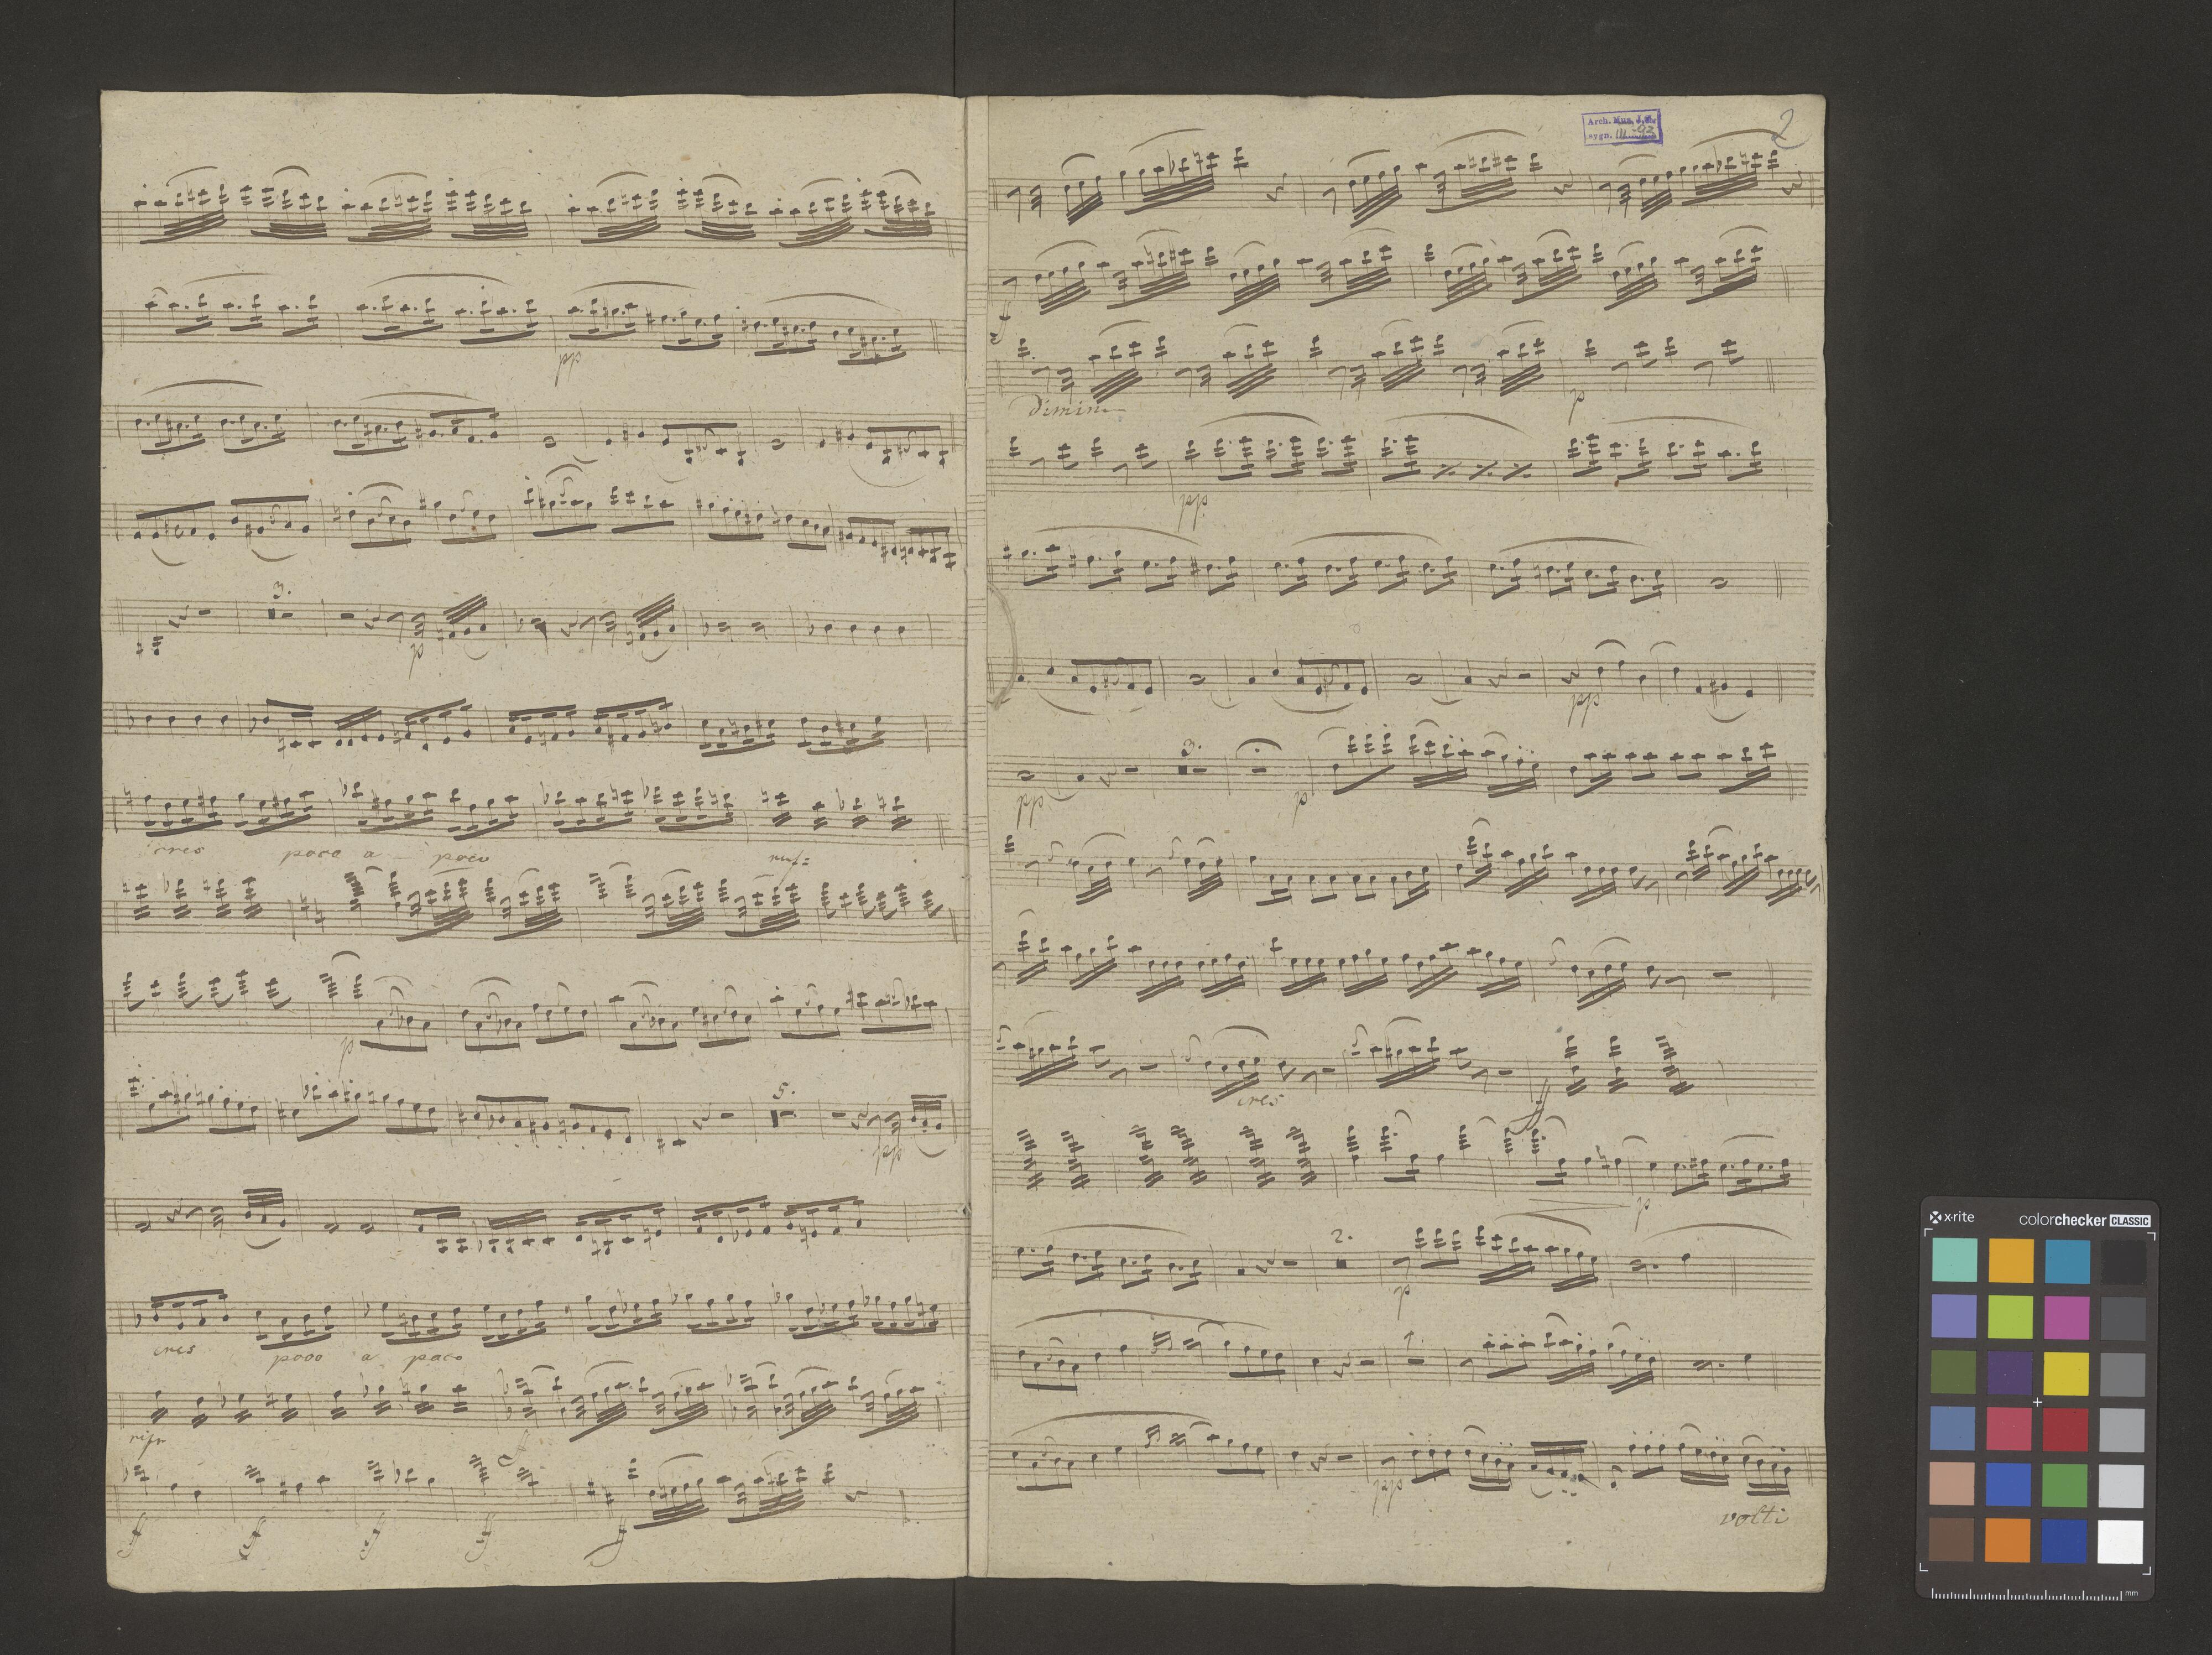 pp
3.
p
cres poco a poco
p
5.
pp
cres poco a poco
f
ff ff ff ff ff
Arch. Muz. J.G.
sygn. III
2
f
dimin
p
pp
pp
pp
3.
p
cres
ff
p
2.
p
pp
volti
x-rite
colorchecker CLASSIC
mm